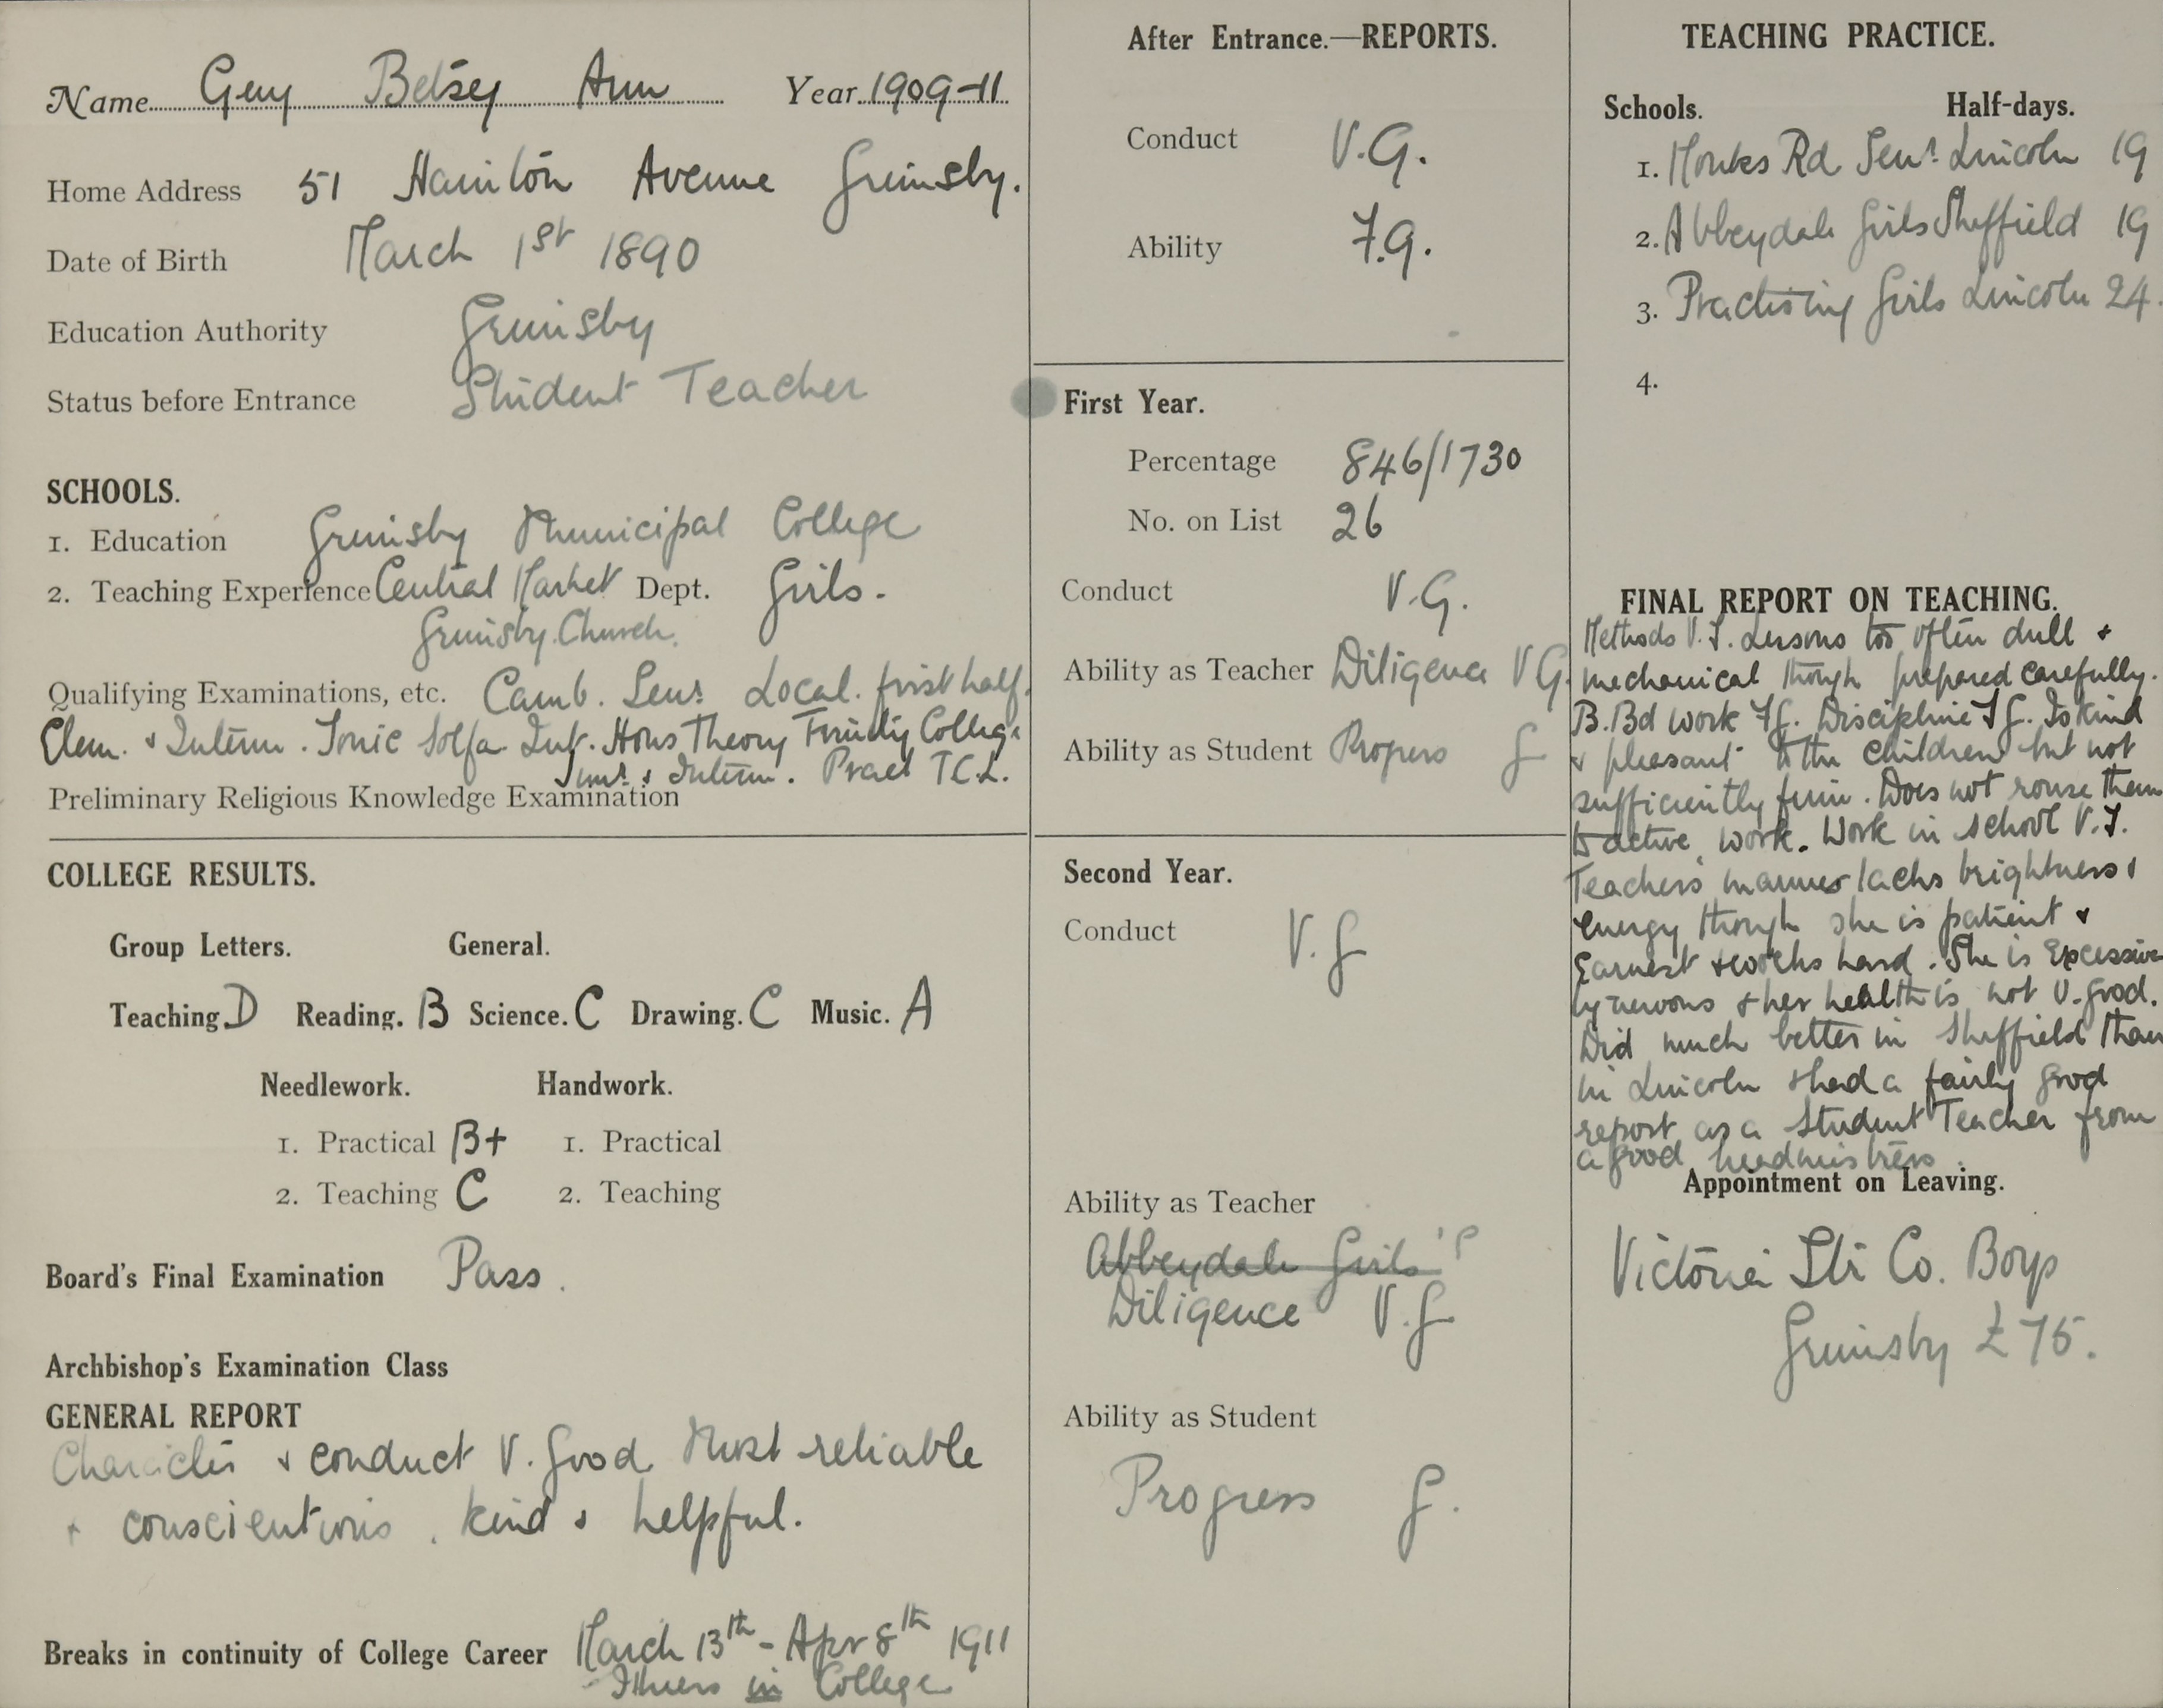 Name Guy Betsey Ann Year 1909-11
Home Address 51 Hamilton Avenue Grimsby.
Date of Birth March 1st 1890
Education Authority Grimsby
Status before Entrance Student Teacher
SCHOOLS.
1. Education Grimsby Municipal College
2. Teaching Experience Central Market Dept. Girls.
Grimsby Church.
Qualifying Examinations, etc. Camb. Senr Local. first half.
Elem. & Interm. Tonic Solfa Int. Hons Theory Trinity College
Junr & Interm. Pract T.C.L.
Preliminary Religious Knowledge Examination
COLLEGE RESULTS.
Group Letters. General.
Teaching D Reading. B Science. C Drawing. C Music. A
Needlework. Handwork.
1. Practical B+ 1. Practical
2. Teaching C 2. Teaching
Board's Final Examination Pass.
Archbishop's Examination Class
GENERAL REPORT
Character & conduct V. Good Most reliable
& conscientious, kind & helpful.
Breaks in continuity of College Career March 13th - Apr 8th 1911
Illness in College
After Entrance.—REPORTS.
Conduct V.G.
Ability F.G.
First Year.
Percentage 846/1730
No. on List 26
Conduct V.G.
Ability as Teacher Diligence V G.
Ability as Student Progress G
Second Year.
Conduct V.G
Ability as Teacher
Abbeydale Girls'
Diligence V.G
Ability as Student
Progress G.
TEACHING PRACTICE.
Schools. Half-days.
1. Monks Rd Senr Lincoln 19
2. Abbeydale Girls Sheffield 19
3. Practising Girls Lincoln 24.
4.
FINAL REPORT ON TEACHING.
Methods V.F. Lessons too often dull &
mechanical though prepared carefully.
B.Bd work F.G. Discipline F G. Is kind
& pleasant to the children but not
sufficiently firm. Does not rouse them
to active work. Work in school V.F.
Teachers manner lacks brightness &
energy though she is patient &
earnest & works hard. She is excessive
ly nervous & her health is not v. good.
Did much better in Sheffield than
in Lincoln & had a fairly good
report as a Student Teacher from
a good headmistress.
Appointment on Leaving.
Victoria Str Co. Boys
Grimsby £75.